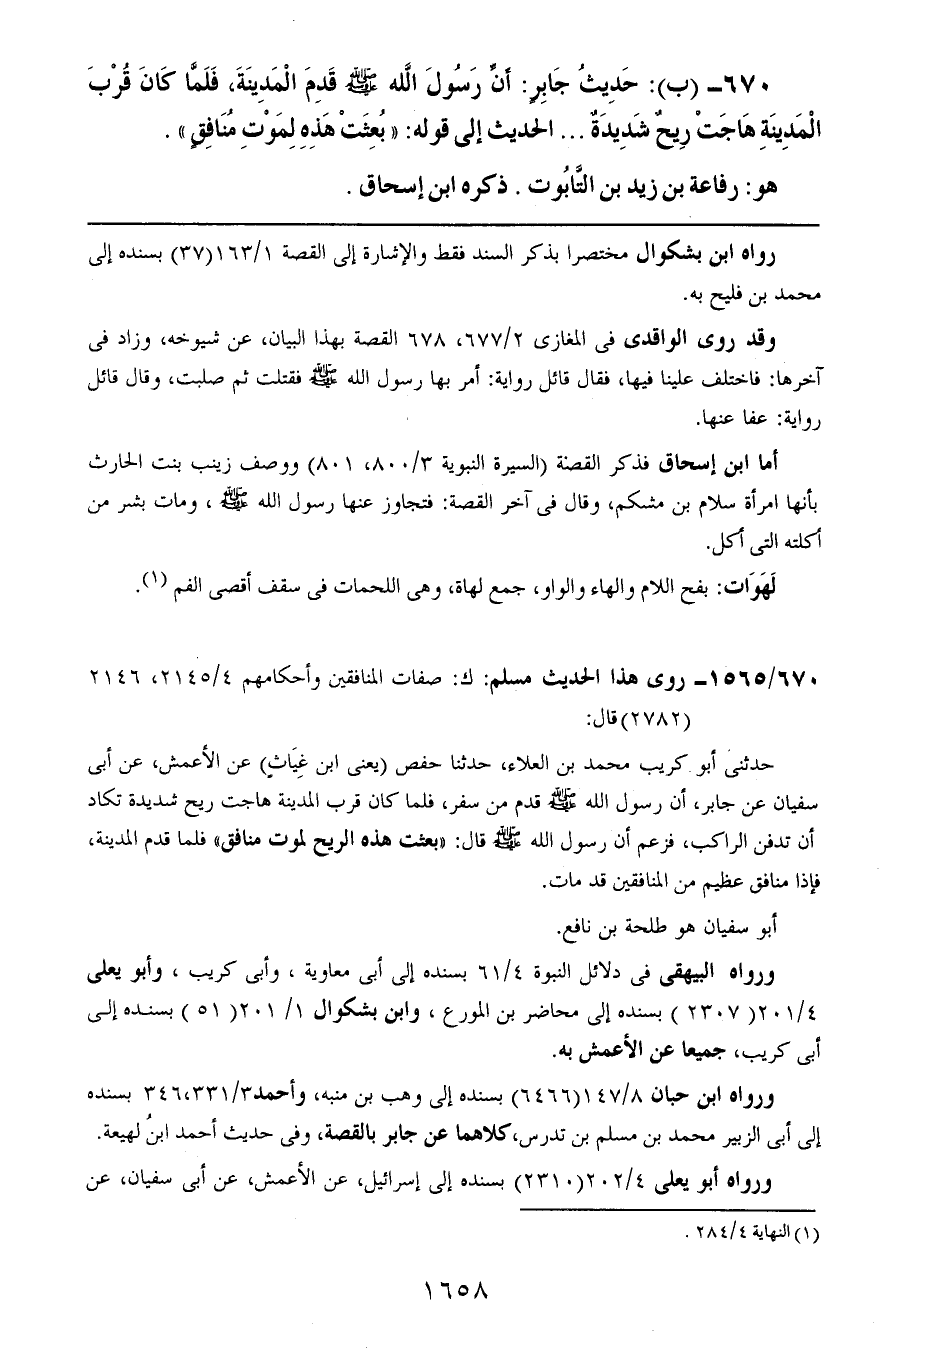 ٦٧٠ـ (ب): حَدِيثُ جَابِرٍ: أَنَّ رَسُولَ اللَّه ﷺ قَدِمَ الْمَدِينَةَ، فَلَمَّا كَانَ قُرْبَ
الْمَدِينَةِ هَاجَتْ رِيحٌ شَدِيدَةٌ ... الحديث إلى قوله: «بُعثَتْ هَذِهِ لِمَوْتِ مُنَافِقٍ» .
هو: رفاعة بن زيد بن التَّابُوت . ذكره ابن إسحاق .
رواه ابن بشكوال مختصرا بذكر السند فقط والإشارة إلى القصة ١/١٦٣(٣٧) بسنده إلى
محمد بن فليح به.
وقد روى الواقدى فى المغازى ٢/٦٧٧، ٦٧٨ القصة بهذا البيان، عن شيوخه، وزاد فى
آخرها: فاختلف علينا فيها، فقال قائل رواية: أمر بها رسول الله ﷺ فقتلت ثم صلبت، وقال قائل
رواية: عفا عنها.
أما ابن إسحاق فذكر القصة (السيرة النبوية ٣/٨٠٠، ٨٠١) ووصف زينب بنت الحارث
بأنها امرأة سلام بن مشكم، وقال فى آخر القصة: فتجاوز عنها رسول الله ﷺ ، ومات بشر من
أكلته التى أكل.
لَهَوَات: بفح اللام والهاء والواو، جمع لهاة، وهى اللحمات فى سقف أقصى الفم (١).
١٥٦٥/٦٧٠ـ روى هذا الحديث مسلم: ك: صفات المنافقين وأحكامهم ٤/٢١٤٥، ٢١٤٦
(٢٧٨٢)قال:
حدثنى أبو كريب محمد بن العلاء، حدثنا حفص (يعنى ابن غِيَاث) عن الأعمش، عن أبى
سفيان عن جابر، أن رسول الله ﷺ قدم من سفر، فلما كان قرب المدينة هاجت ريح شديدة تكاد
أن تدفن الراكب، فزعم أن رسول الله ﷺ قال: «بعثت هذه الريح لموت منافق» فلما قدم المدينة،
فإذا منافق عظيم من المنافقين قد مات.
أبو سفيان هو طلحة بن نافع.
ورواه البيهقى فى دلائل النبوة ٤/٦١ بسنده إلى أبى معاوية ، وأبى كريب ، وأبو يعلى
٤/٢٠١( ٢٣٠٧ ) بسنده إلى محاضر بن المورع ، وابن بشكوال ١/ ٢٠١( ٥١ ) بسنده إلى
أبى كريب، جميعا عن الأعمش به.
ورواه ابن حبان ٨/١٤٧(٦٤٦٦) بسنده إلى وهب بن منبه، وأحمد٣/٣٤٦،٣٣١ بسنده
إلى أبى الزبير محمد بن مسلم بن تدرس،كلاهما عن جابر بالقصة، وفى حديث أحمد ابنُ لهيعة.
ورواه أبو يعلى ٤/٢٠٢(٢٣١٠) بسنده إلى إسرائيل، عن الأعمش، عن أبى سفيان، عن
(١) النهاية ٤/٢٨٤ .
١٦٥٨